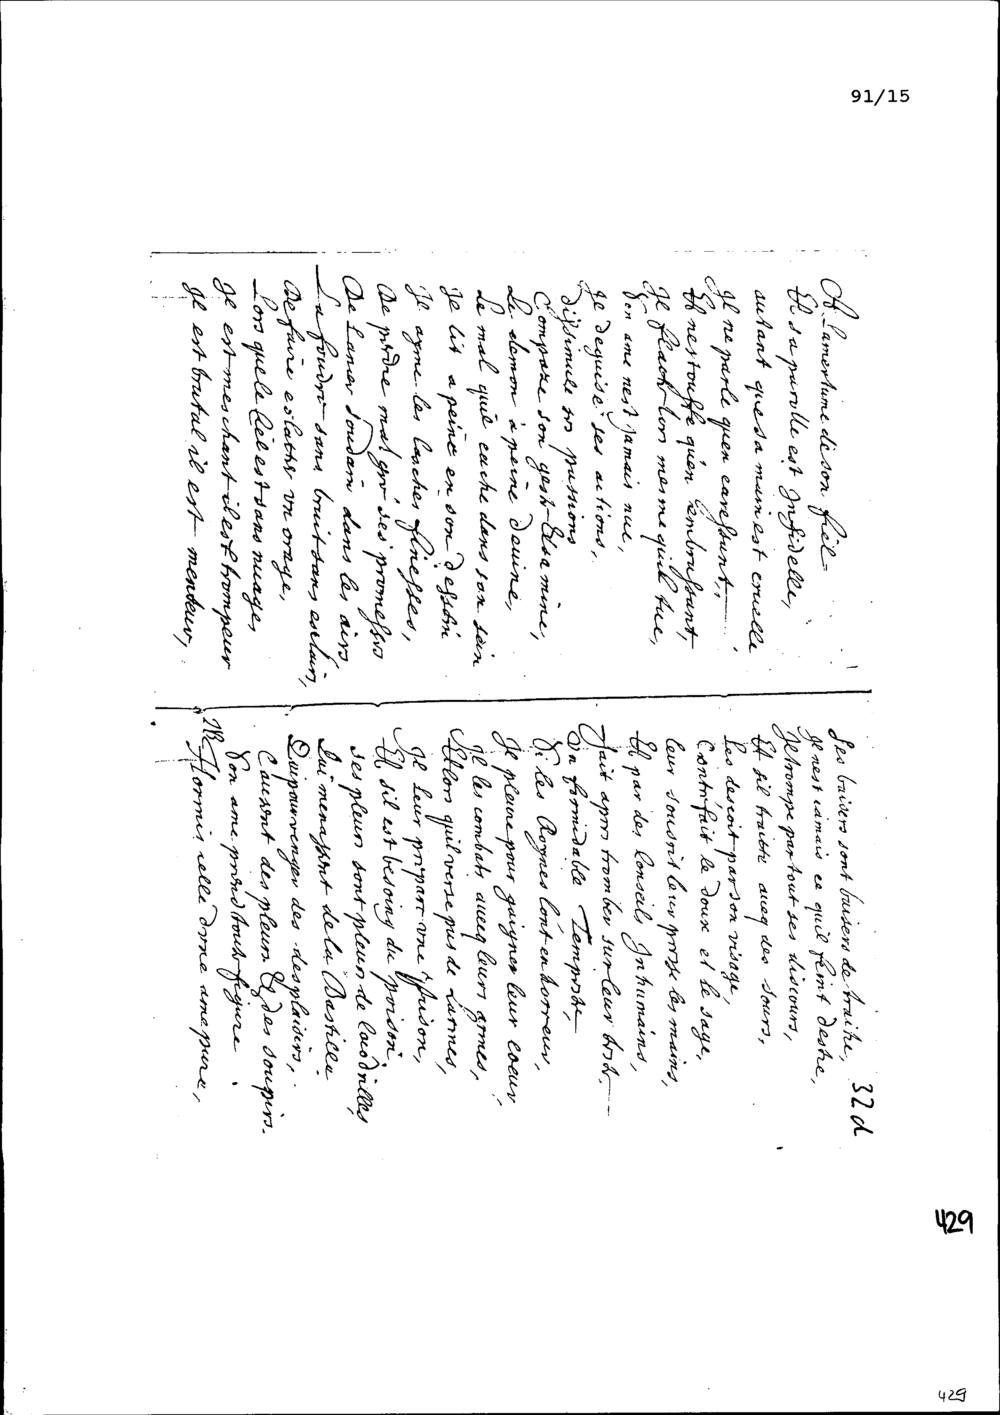 91/15
A Lamertume de son fiel
Et sa parolle est Infidelle,
autant que sa main est cruelle
Il ne parle quen caressant,
Et n'estouffe qu'en Lembrassant,
Il flatte lors mesme quil tue,
Son ame nest jamais nue,
Il deguise ses actions,
dissimule ses passions
Compose son geste Et sa mine,
Le demon à peine devine,
Le mal quil cache dans son sein
Il lit a peine en son dessein
Il ayme les lasches finesses,
De perdre malgré ses promesses
De Lancer soudain dans les airs
La foudre sans bruit sans esclairs,
De faire esclatter un orage,
Lors que le Ciel est sans nuage,
Il est meschant il est trompeur
Il est brutal il est menteur,
32 d
Ses baisers sont baisers de traitre,
Il nest iamais ce quil feint destre,
Il trompe par tout ses discours,
Et sil traitte aueq des sours,
Les desçoit par son visage,
Contrefait le doux et le sage,
Leur sousrit leur presse les mains,
Et par des Conseils Inhumains,
Fait apres tomber sur leur teste
Un formidable Tempeste,
Si les Roynes lont en horreur,
Il pleure pour gaigner leur coeur
Il les combat aueq leurs armes,
Allors quil verse pas de Larmes,
Il leur prepare une prison,
Et sil est besoing du poison,
ses pleurs sont pleurs de Cocodrilles,
Qui menassent de la Bastille
Qui pour venger des desplaisirs,
Causent des pleurs Et des soupirs.
Son ame prend toutte figure
Hormis celle dune ame pure,
429
429